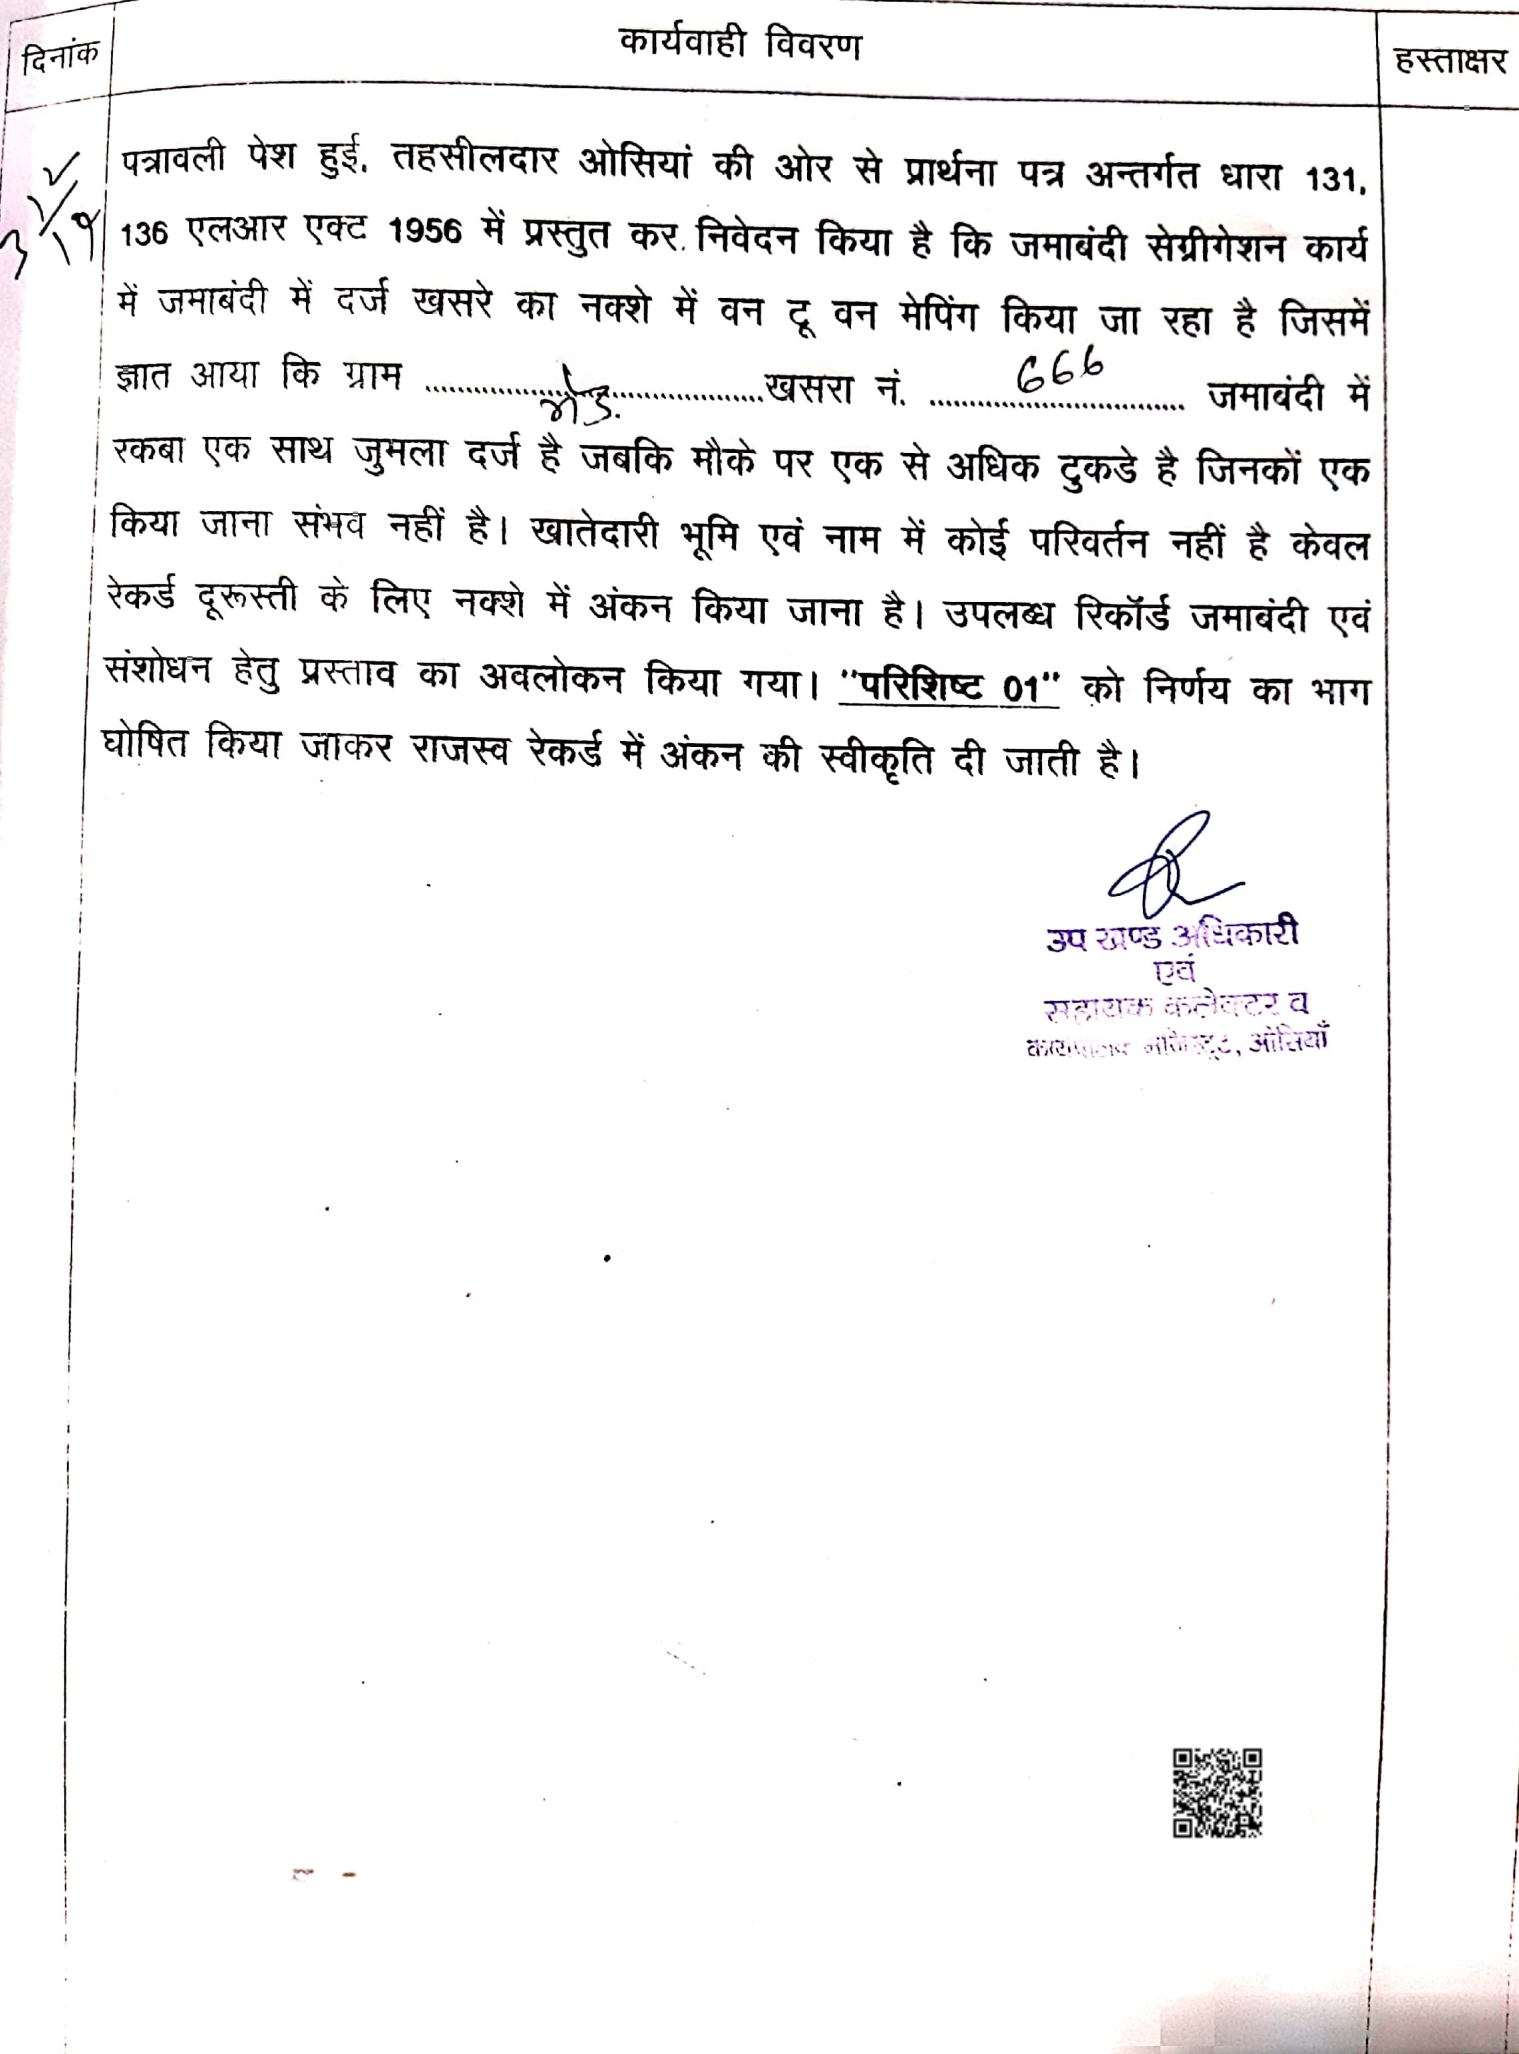 दिनांक कार्यवाही विवरण हस्ताक्षर
पत्रावली पेश हुई, तहसीलदार ओसियां की ओर से प्रार्थना पत्र अन्तर्गत धारा 131,
136 एलआर एक्ट 1956 में प्रस्तुत कर निवेदन किया है कि जमाबंदी सेग्रीगेशन कार्य
में जमाबंदी में दर्ज खसरे का नक्शे में वन टू वन मेपिंग किया जा रहा है जिसमें
ज्ञात आया कि ग्राम ........................................ खसरा नं. 666 जमाबंदी में
रकबा एक साथ जुमला दर्ज है जबकि मौके पर एक से अधिक टुकडे है जिनकों एक
किया जाना संभव नहीं है। खातेदारी भूमि एवं नाम में कोई परिवर्तन नहीं है केवल
रेकर्ड दूरूस्ती के लिए नक्शे में अंकन किया जाना है। उपलब्ध रिकॉर्ड जमाबंदी एवं
संशोधन हेतु प्रस्ताव का अवलोकन किया गया। "परिशिष्ट 01" को निर्णय का भाग
घोषित किया जाकर राजस्व रेकर्ड में अंकन की स्वीकृति दी जाती है।
उप खण्ड अधिकारी
एवं
सहायक कलेक्टर व
ओसियाँ